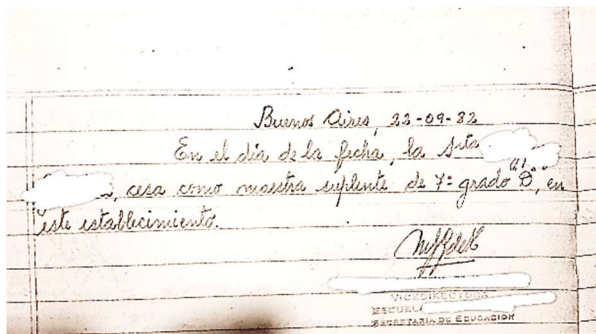 Buenos Aires, 22-09-82
En el día de la fecha, la Srta
cesa como maestra suplente de 7º grado "D", en
este establecimiento.
VICEDIRECTORA
ESCUEL
SECRETARIA DE EDUCACION